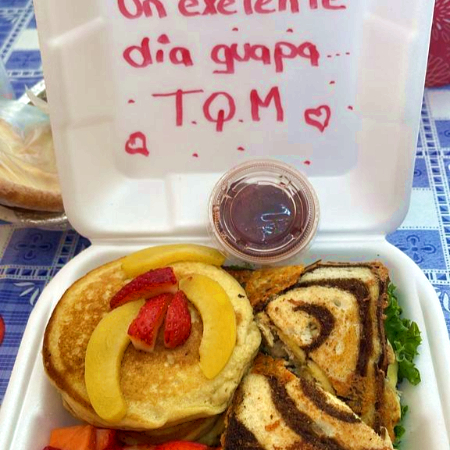 Un exelente
dia guapa...
T.Q.M